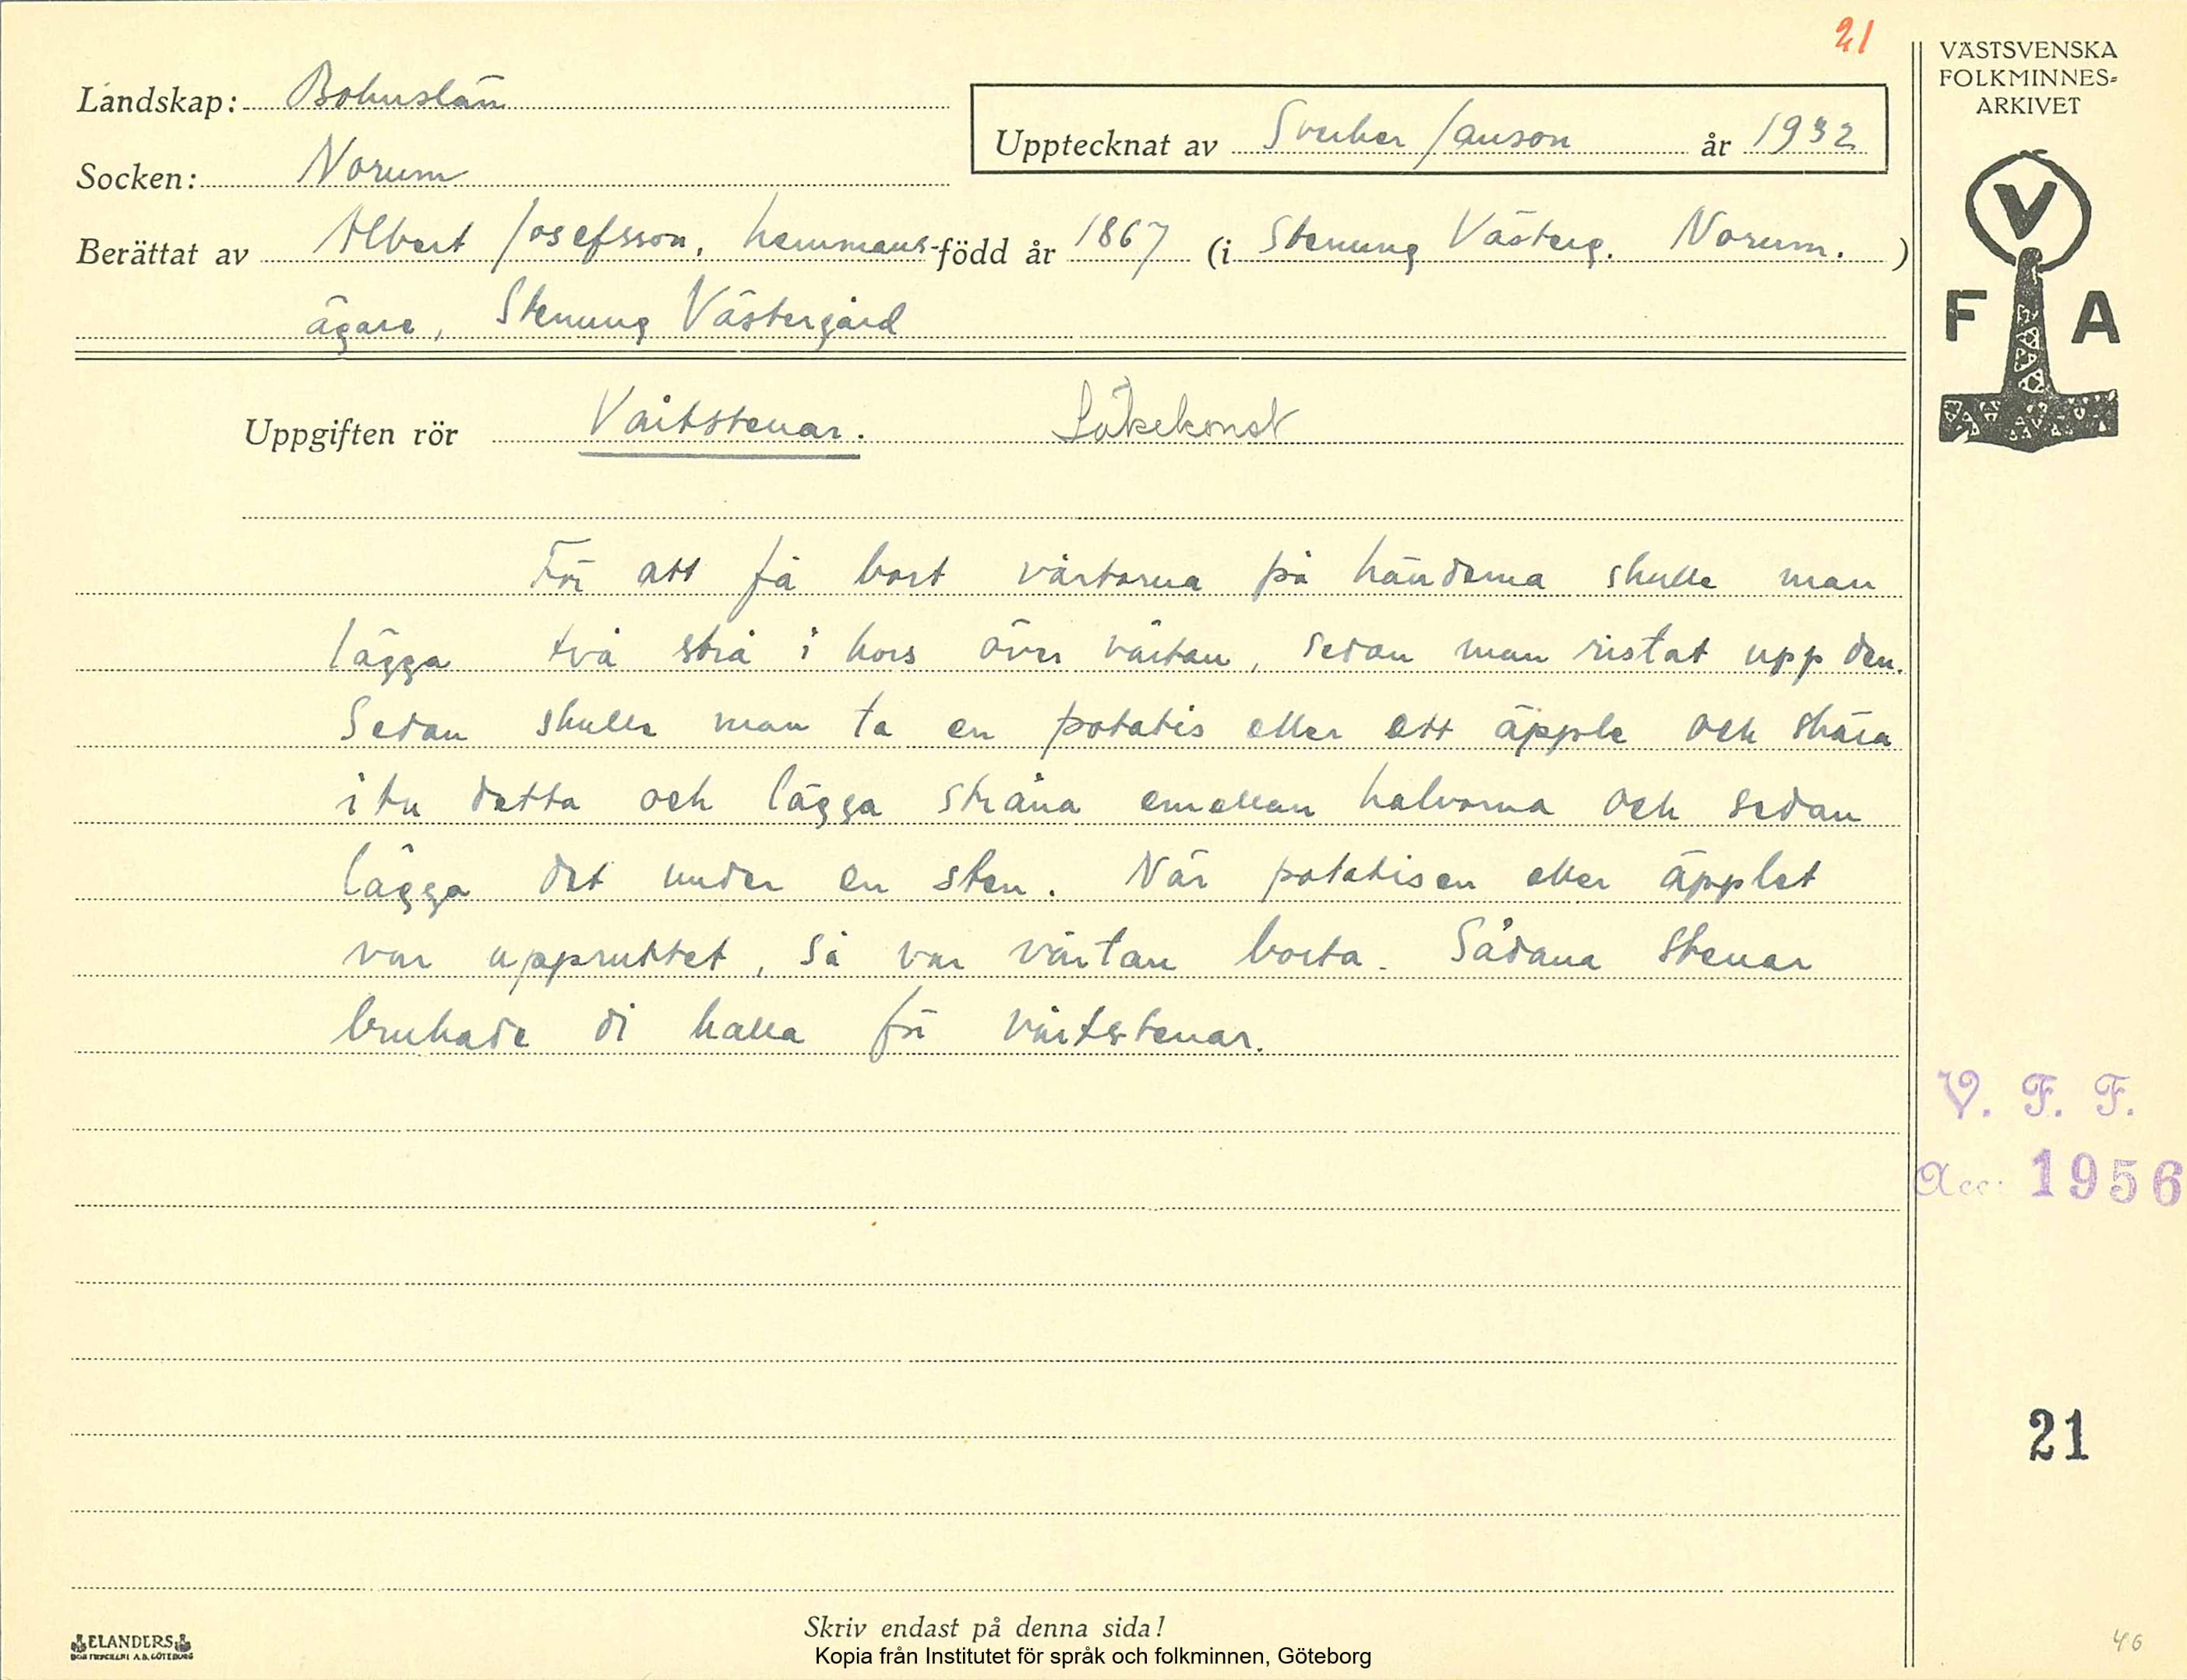 21
VÄSTSVENSKA
FOLKMINNES=
ARKIVET
Landskap: Bohuslän
Upptecknat av Sverker Janson år 1932
Socken: Norum
Berättat av Albert Josefsson, hemmans- född år 1867 (i Stenung Västerg. Norum. )
ägare, Stenung Västergård
V
F A
Uppgiften rör Vårtstenar. Läkekonst
För att få bort vårtorna på händerna skulle man
lägga två strå i kors över vårtan, sedan man ristat upp den.
Sedan skulle man ta en potatis eller ett äpple och skära
itu detta och lägga stråna emellan halvorna och sedan
lägga det under en sten. När potatisen eller äpplet
var uppruttet, så var vårtan borta. Sådana stenar
brukade di kalla för vårtstenar.
V. F. F.
Acc. 1956
21
Skriv endast på denna sida!
ELANDERS
BOKTRYCKERI A.B. GÖTEBORG
Kopia från Institutet för språk och folkminnen, Göteborg
46